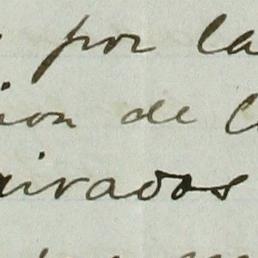 por la
ion de l
airados